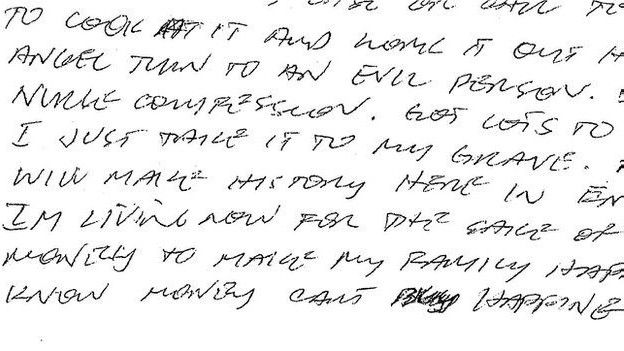 TO LOOK AT IT AND WORK IT OUT H
ANGEL TURN TO AN EVIL PERSON.
NURSE CONFESSION. GOT LOTS TO
I JUST TAKE IT TO MY GRAVE.
WILL MAKE HISTORY HERE IN EN
IM LIVING NOW FOR THE SAKE OF
MONEY TO MAKE MY FAMILY HAPP
KNOW MONEY CANT HAPPINE